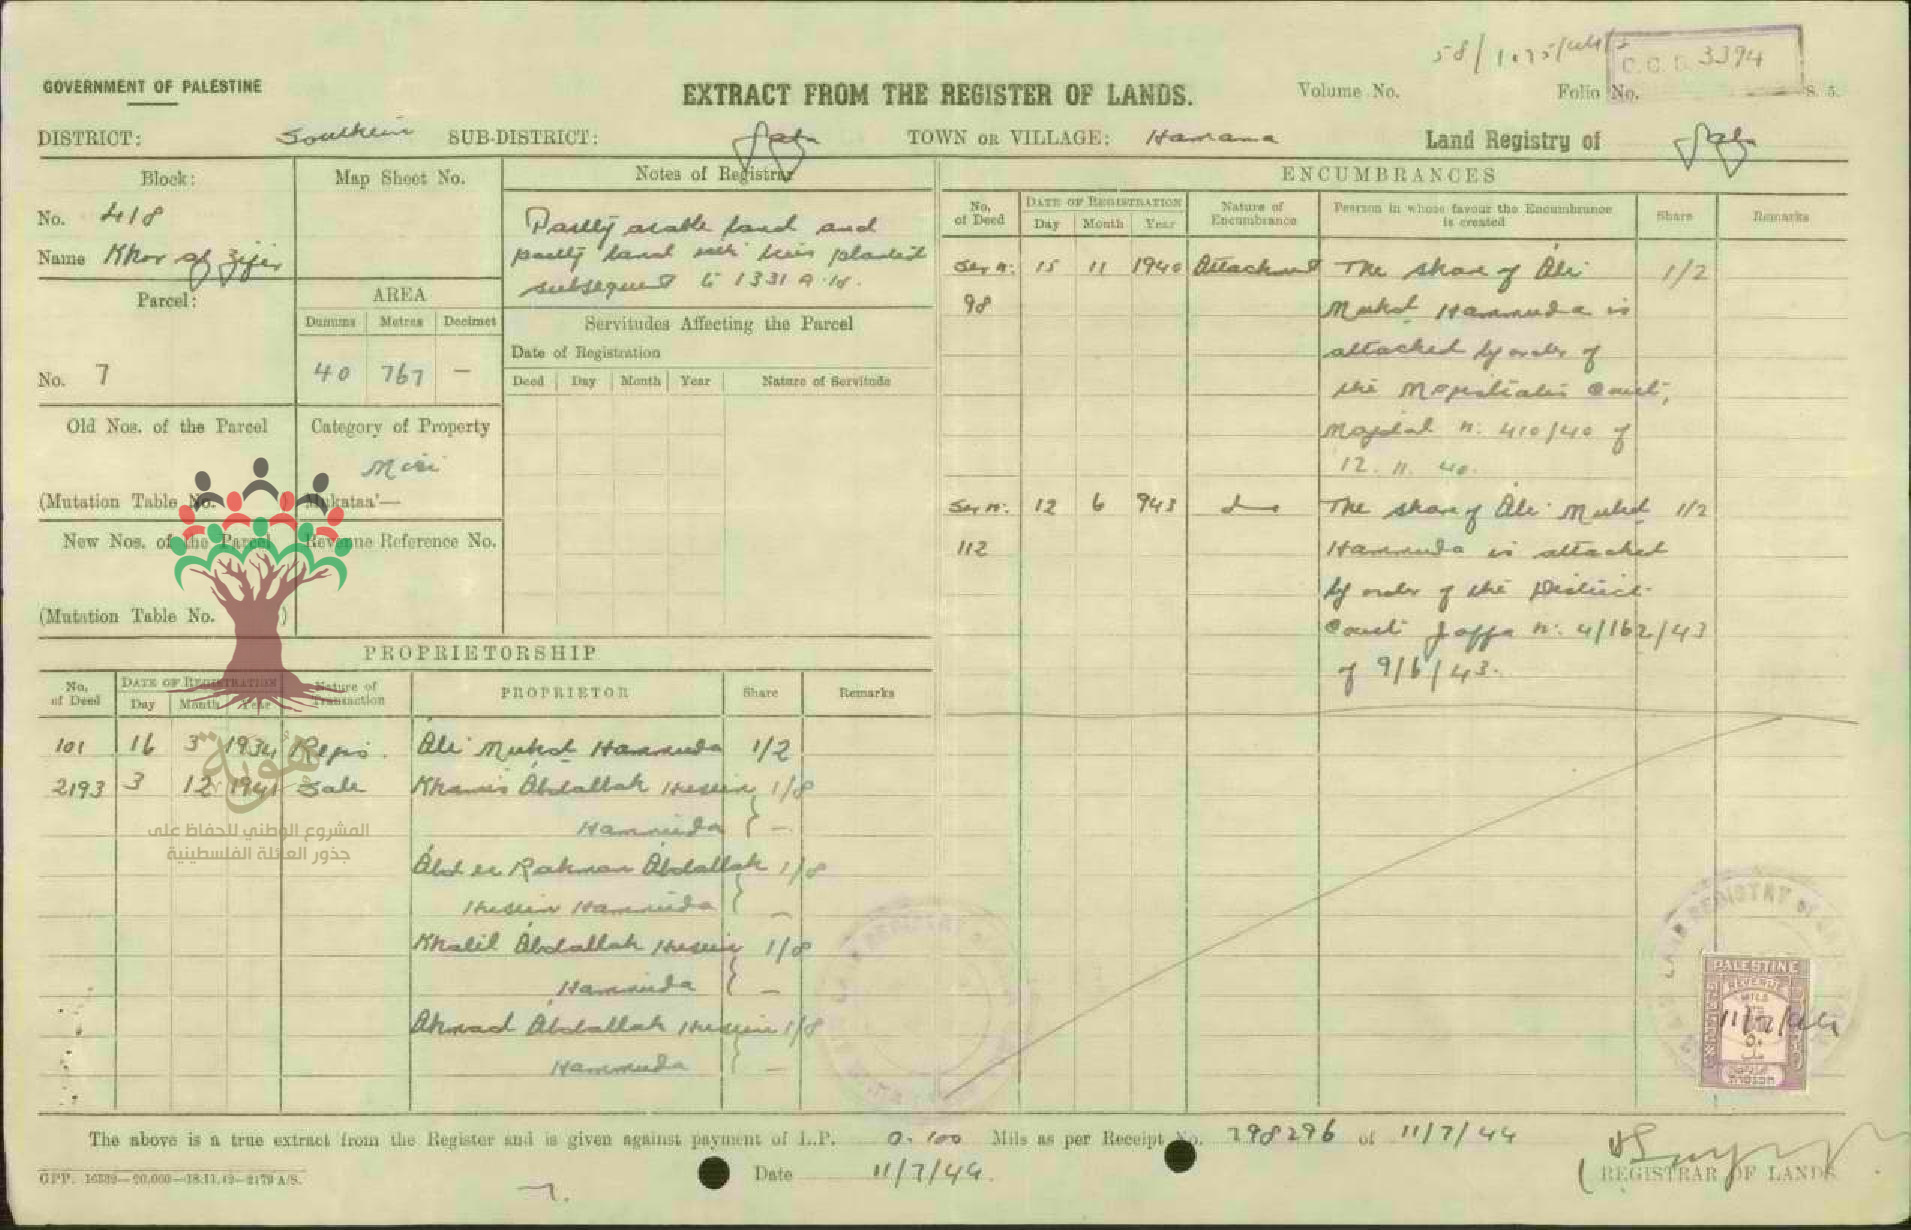 58/1075/44/2
C.C.D. 3394
GOVERNMENT OF PALESTINE
EXTRACT FROM THE REGISTER OF LANDS.
Volume No.
Folio No.
S. 5.
DISTRICT: Southern SUB-DISTRICT: Gaza TOWN OR VILLAGE: Hamama Land Registry of Gaza
Block:
No. 418
Name Khor
Map Sheet No.
Notes of Registrar
Partly arable land and
partly land with trees planted
subsequent to 1331 A.H.
Parcel:
No. 7
AREA
Dunums Metres Decimet
40 767 —
Servitudes Affecting the Parcel
Date of Registration
Deed Day Month Year Nature of Servitude
Old Nos. of the Parcel
(Mutation Table No.
Category of Property
Miri
Mukataa'—
New Nos. of the Parcel
(Mutation Table No. )
Revenue Reference No.
PROPRIETORSHIP
No. of Deed DATE OF REGISTRATION Day Month Year Nature of Transaction PROPRIETOR Share Remarks
101 16 3 1934 Regis. Ali Muhd Hammuda 1/2
2193 3 12 1941 Sale Khamis Abdallah Husein 1/8
Hammuda } —
Abd er Rahman Abdallah 1/8
Husein Hammuda } —
Khalil Abdallah Husein 1/8
Hammuda } —
Ahmad Abdallah Husein 1/8
Hammuda } —
هوية
المشروع الوطني للحفاظ على
جذور العائلة الفلسطينية
ENCUMBRANCES
No. of Deed DATE OF REGISTRATION Day Month Year Nature of Encumbrance Person in whose favour the Encumbrance is created Share Remarks
Ser n: 15 11 1940 Attachment The share of Ali 1/2
98 Muhd Hammuda is
attached by order of
the Magistrates Court,
Majdal n: 410/40 of
12. 11. 40.
Ser n: 12 6 943 do The share of Ali Muhd 1/2
112 Hammuda is attached
by order of the District
Court Jaffa n: 4/162/43
of 9/6/43.
LAND REGISTRY OF
PALESTINE
REVENUE
MILS
11/7/44
The above is a true extract from the Register and is given against payment of L.P. 0.100 Mils as per Receipt No. 298296 of 11/7/44
Date 11/7/44.
REGISTRAR OF LANDS.